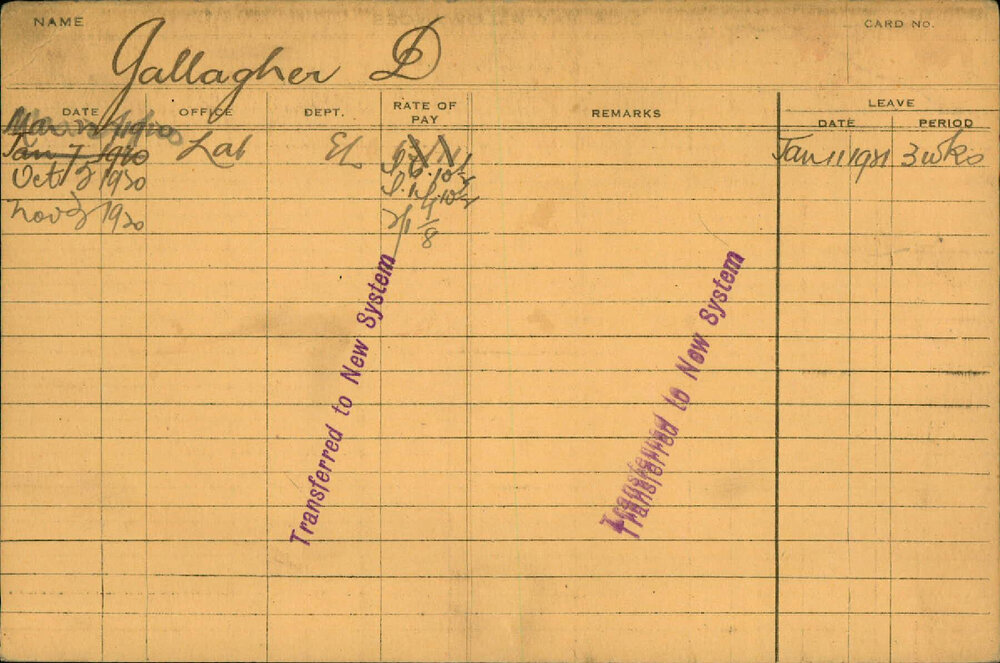 NAME
CARD NO.
Gallagher D
DATE OFFICE DEPT. RATE OF PAY REMARKS LEAVE
DATE PERIOD
Mar 1920
Jan 7 1920 Lab EL Jan 11 1921 3 wks
Oct 2 1920
Nov 2 1920
Transferred to New System
Transferred to New System